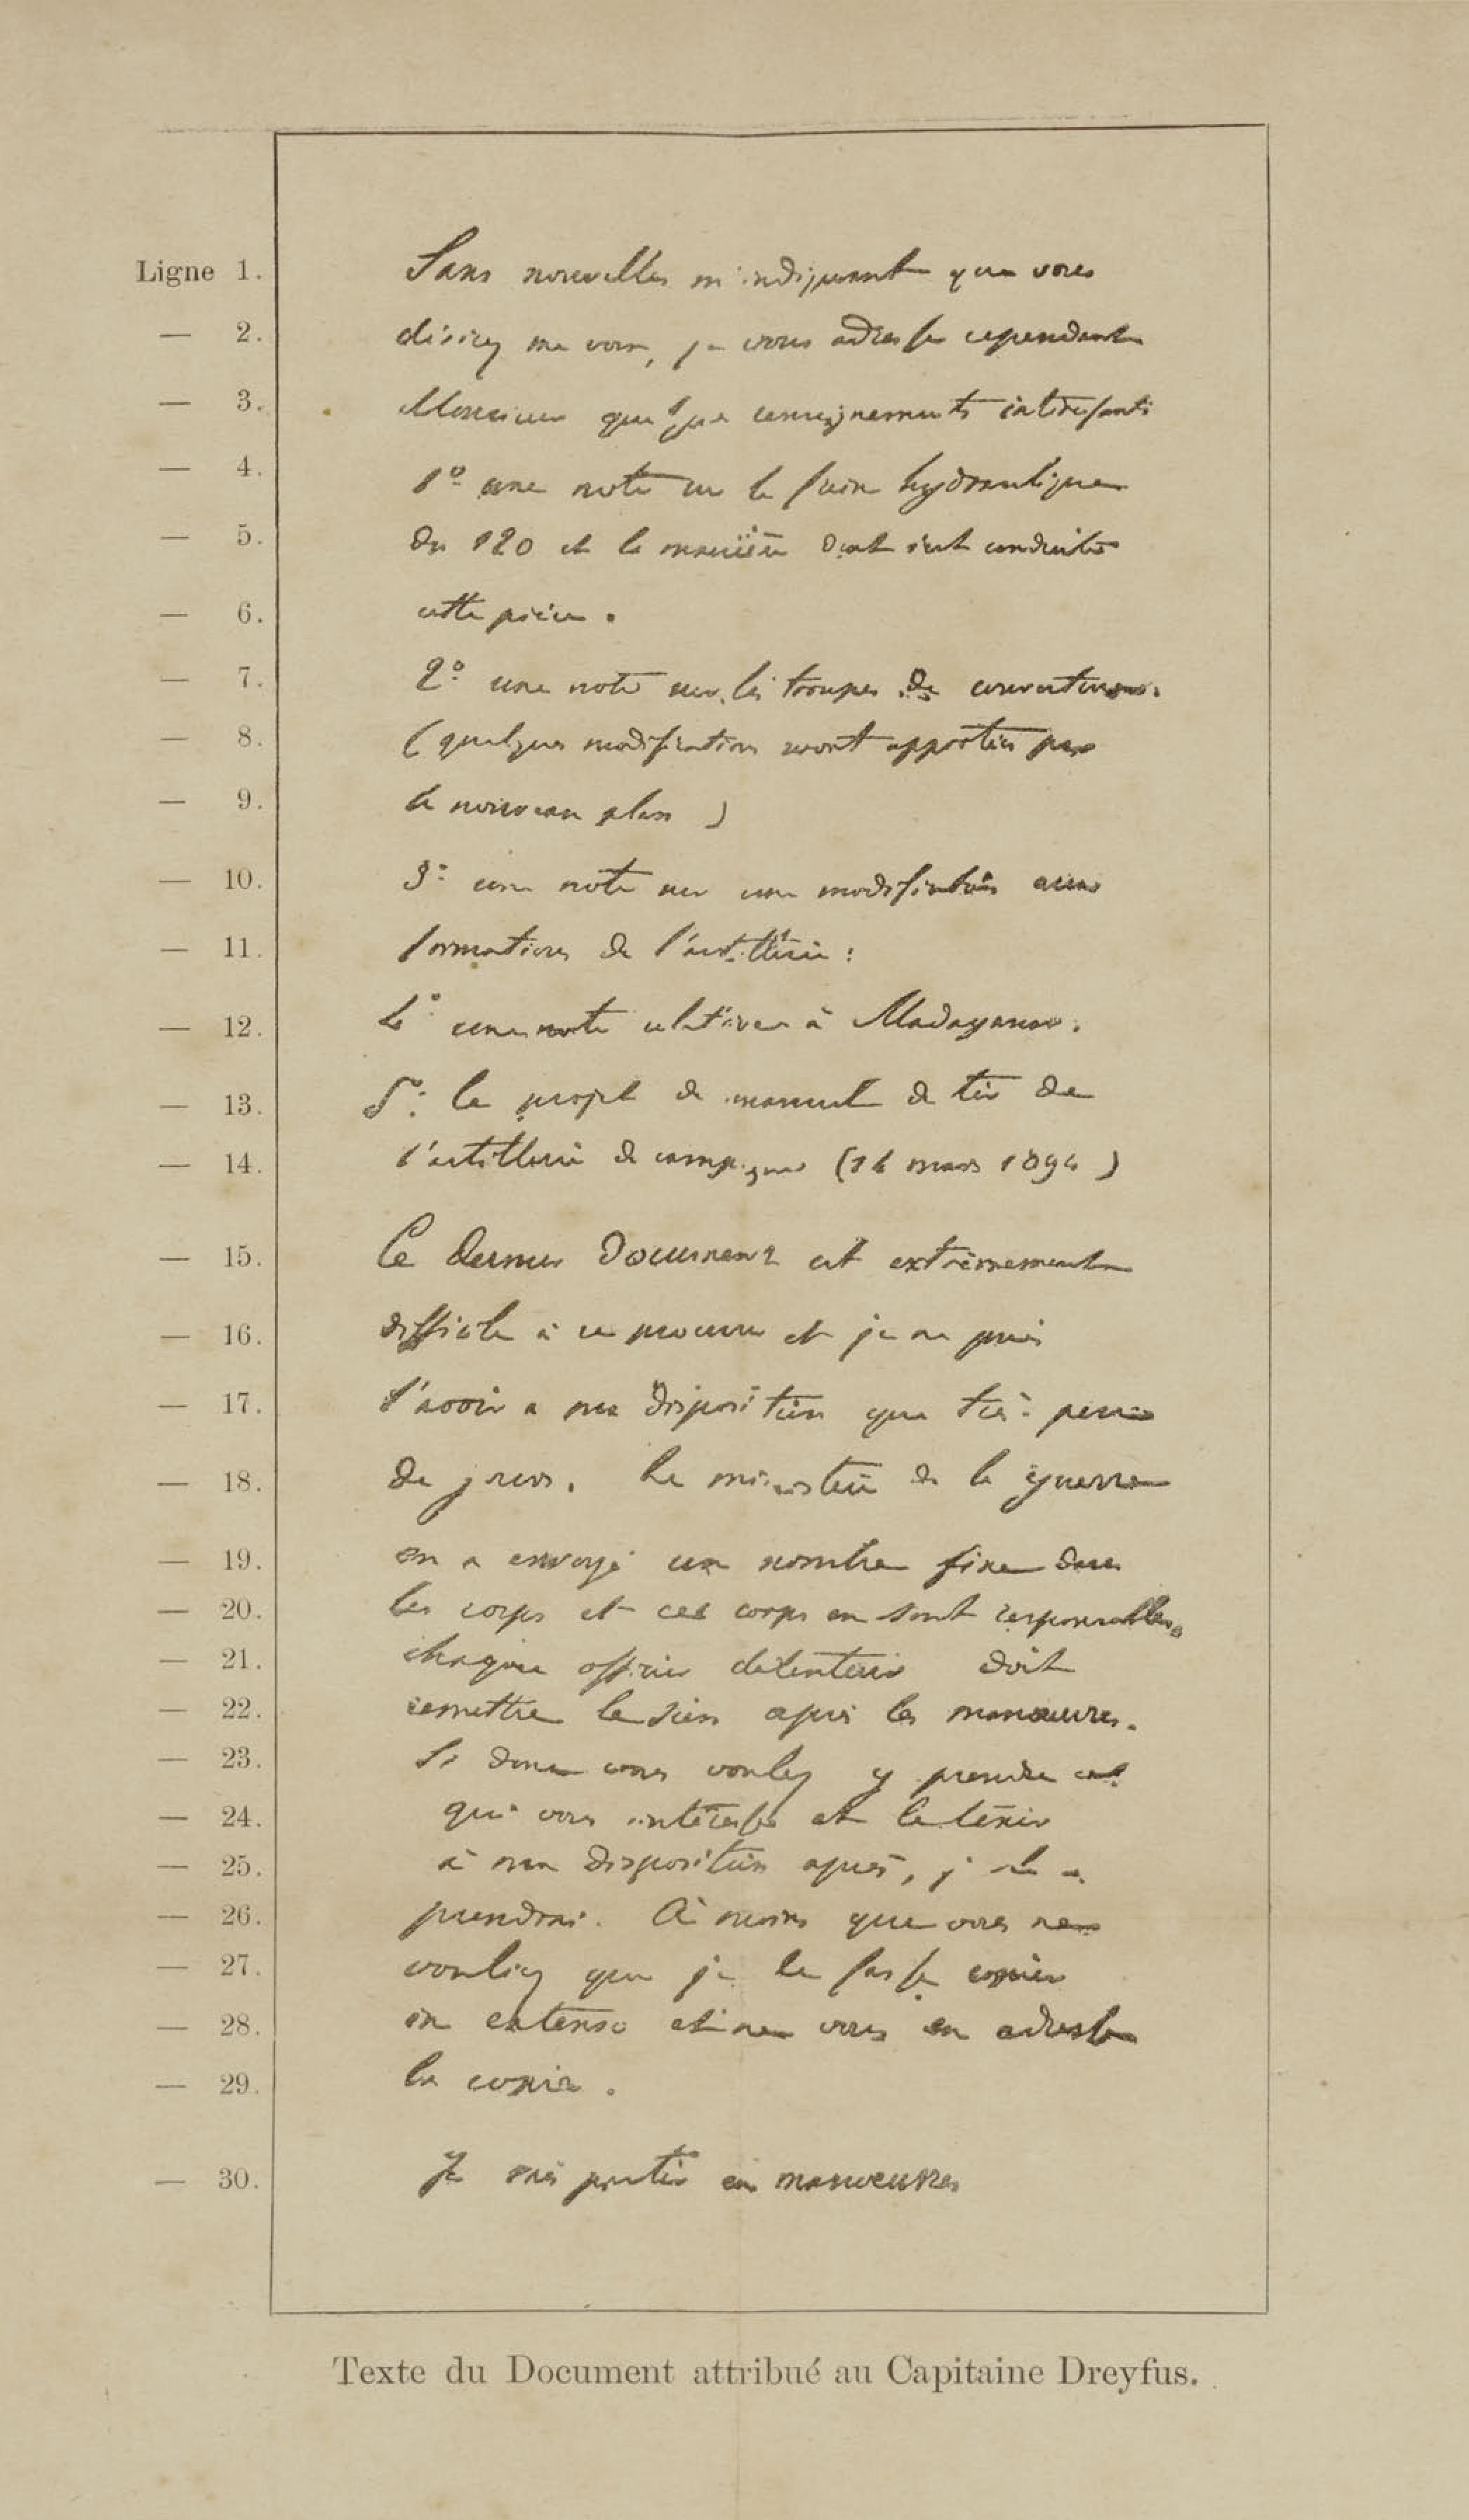 Ligne 1. Sans nouvelles m'indiquant que vous
— 2. désirez me voir, je vous adresse cependant
— 3. Monsieur quelques renseignements intéressants
— 4. 1º une note sur le frein hydraulique
— 5. du 120 et la manière dont s'est conduite
— 6. cette pièce.
— 7. 2º une note sur les troupes de couverture.
— 8. (quelques modifications seront apportées par
— 9. le nouveau plan)
— 10. 3º une note sur une modification aux
— 11. formations de l'artillerie:
— 12. 4º une note relative à Madagascar.
— 13. 5º le projet de manuel de tir de
— 14. l'artillerie de campagne (14 mars 1894)
— 15. Ce dernier document est extrêmement
— 16. difficile à se procurer et je ne puis
— 17. l'avoir à ma disposition que très peu
— 18. de jours. Le ministère de la guerre
— 19. en a envoyé un nombre fixe dans
— 20. les corps et ces corps en sont responsables,
— 21. chaque officier détenteur doit
— 22. remettre le sien après les manœuvres.
— 23. Si donc vous voulez y prendre ce
— 24. qui vous intéresse et le tenir
— 25. à ma disposition après, je le
— 26. prendrai. À moins que vous ne
— 27. vouliez que je le fasse copier
— 28. in extenso et ne vous en adresse
— 29. la copie.
— 30. Je vais partir en manœuvres
Texte du Document attribué au Capitaine Dreyfus.